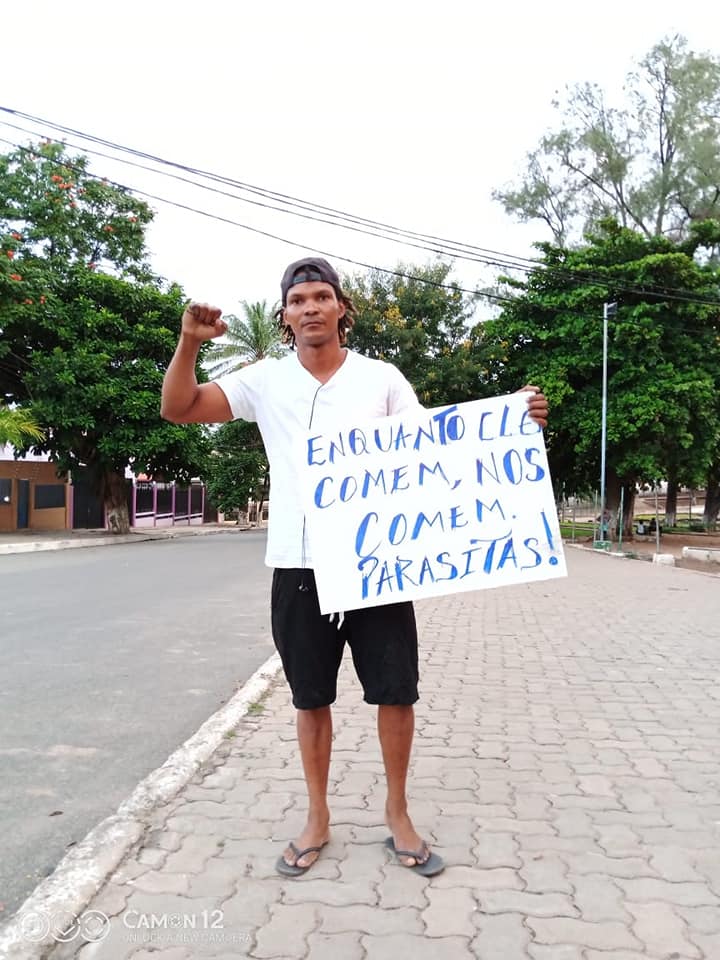 ENQUANTO ELE
COMEM, NOS
COMEM.
PARASITAS!
CAMON 12
UNLOCK A NEW CAMERA